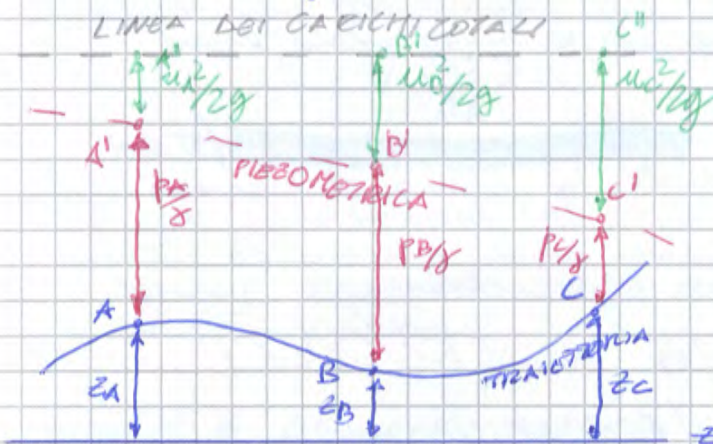 LINEA DEI CARICHI TOTALI
A" B" C"
u_A²/2g u_B²/2g u_C²/2g
A' B' C'
PIEZOMETRICA
p_A/γ p_B/γ p_C/γ
A B C
TRAIETTORIA
z_A z_B z_C